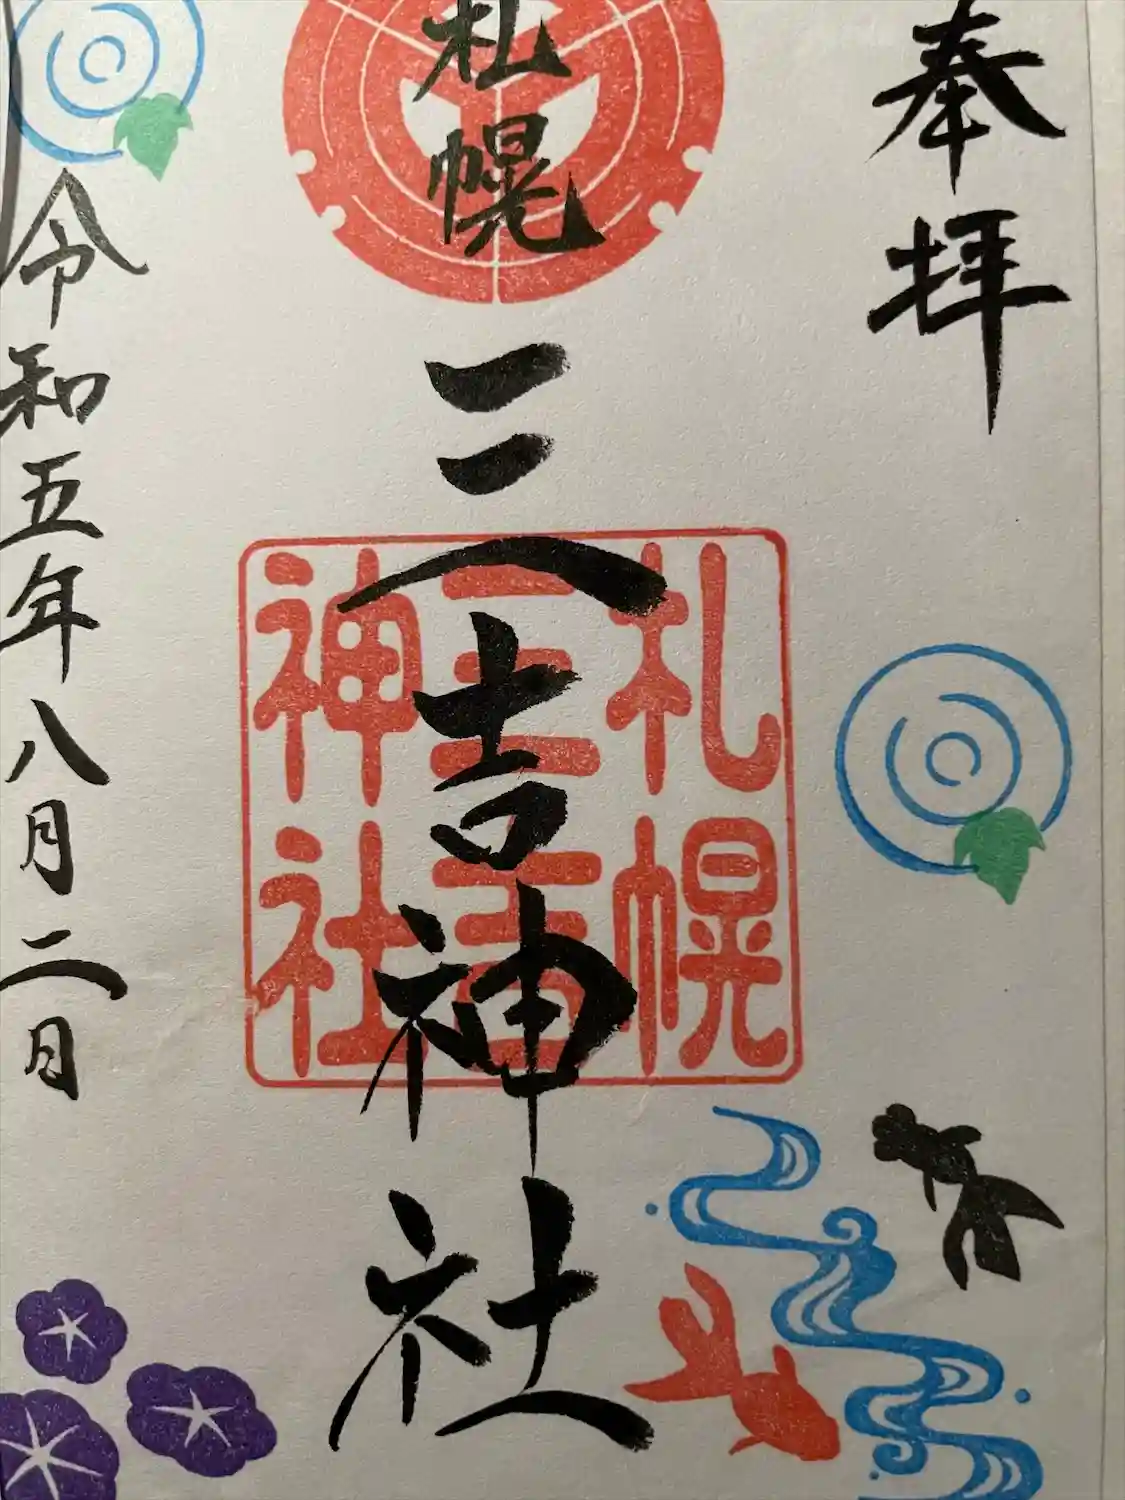 奉拝
札幌三吉神社
札幌
三吉
神社
令和五年八月二日